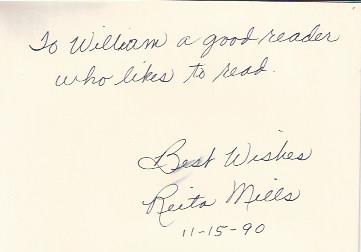 To William a good reader
who likes to read.
Best Wishes
Reita Mills
11-15-90